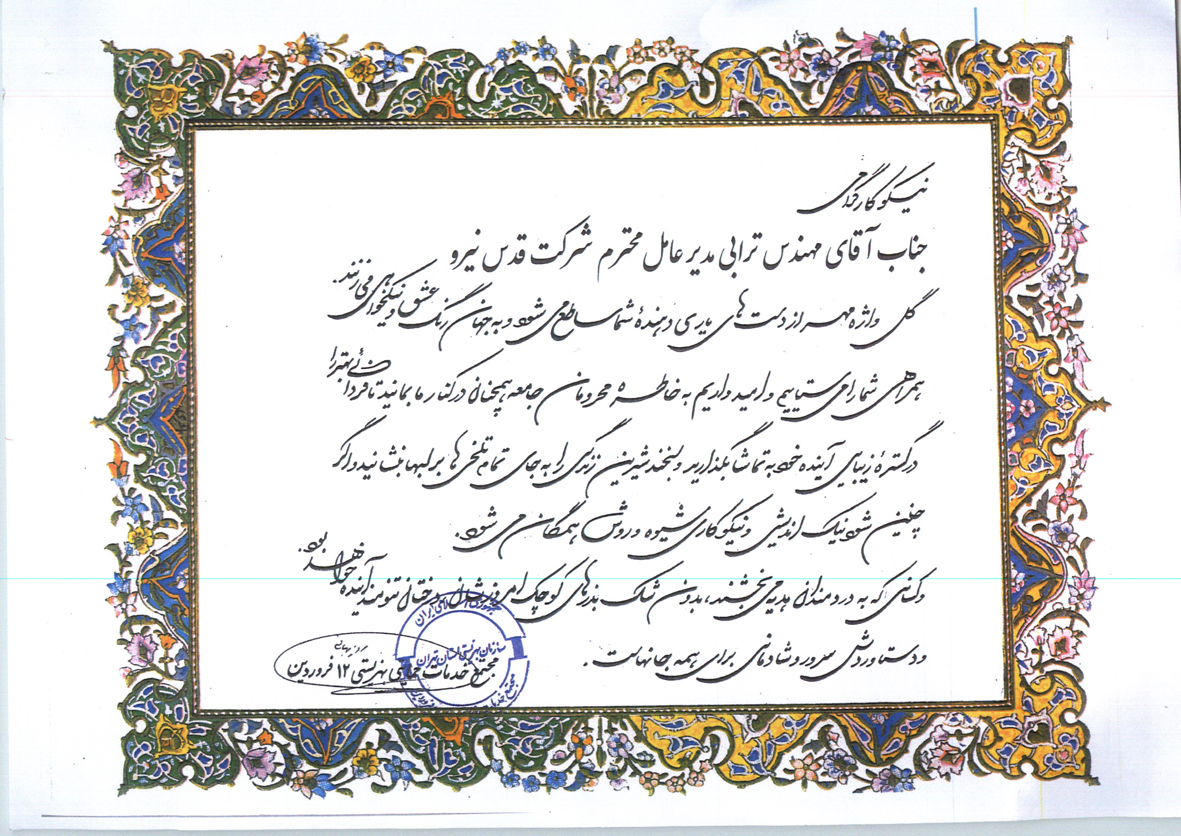 نیکوکار گرامی
جناب آقای مهندس ترابی مدیر عامل محترم شرکت قدس نیرو
گل واژه مهر از دست‌های یاری دهندهٔ شما ساطع می شود و به جهان رنگ عشق و نیکخواهی می زند.
همراهی شما را می ستاییم و امید داریم به خاطره محرومان جامعه همچنان در کنار ما بمانید تا فردائی بهتر را
در گسترهٔ زیبایی آینده خود به تماشا بگذارید و لبخند شیرین زندگی را به جای تمام تلخی ها بر لبها بنشانید و اگر
چنین شود نیک اندیشی و نیکوکاری شیوه و روش همگان می شود.
و کسانی که به دردمندان هدیه می بخشند، بدون شک بذرهای کوچک امروزشان درختان تنومند آینده خواهند بود.
و دستاوردش سرور و شادمانی برای همه جانهاست.
جمهوری اسلامی ایران
سازمان بهزیستی استان تهران
مجتمع خدمات حمایتی بهزیستی ۱۲ فروردین